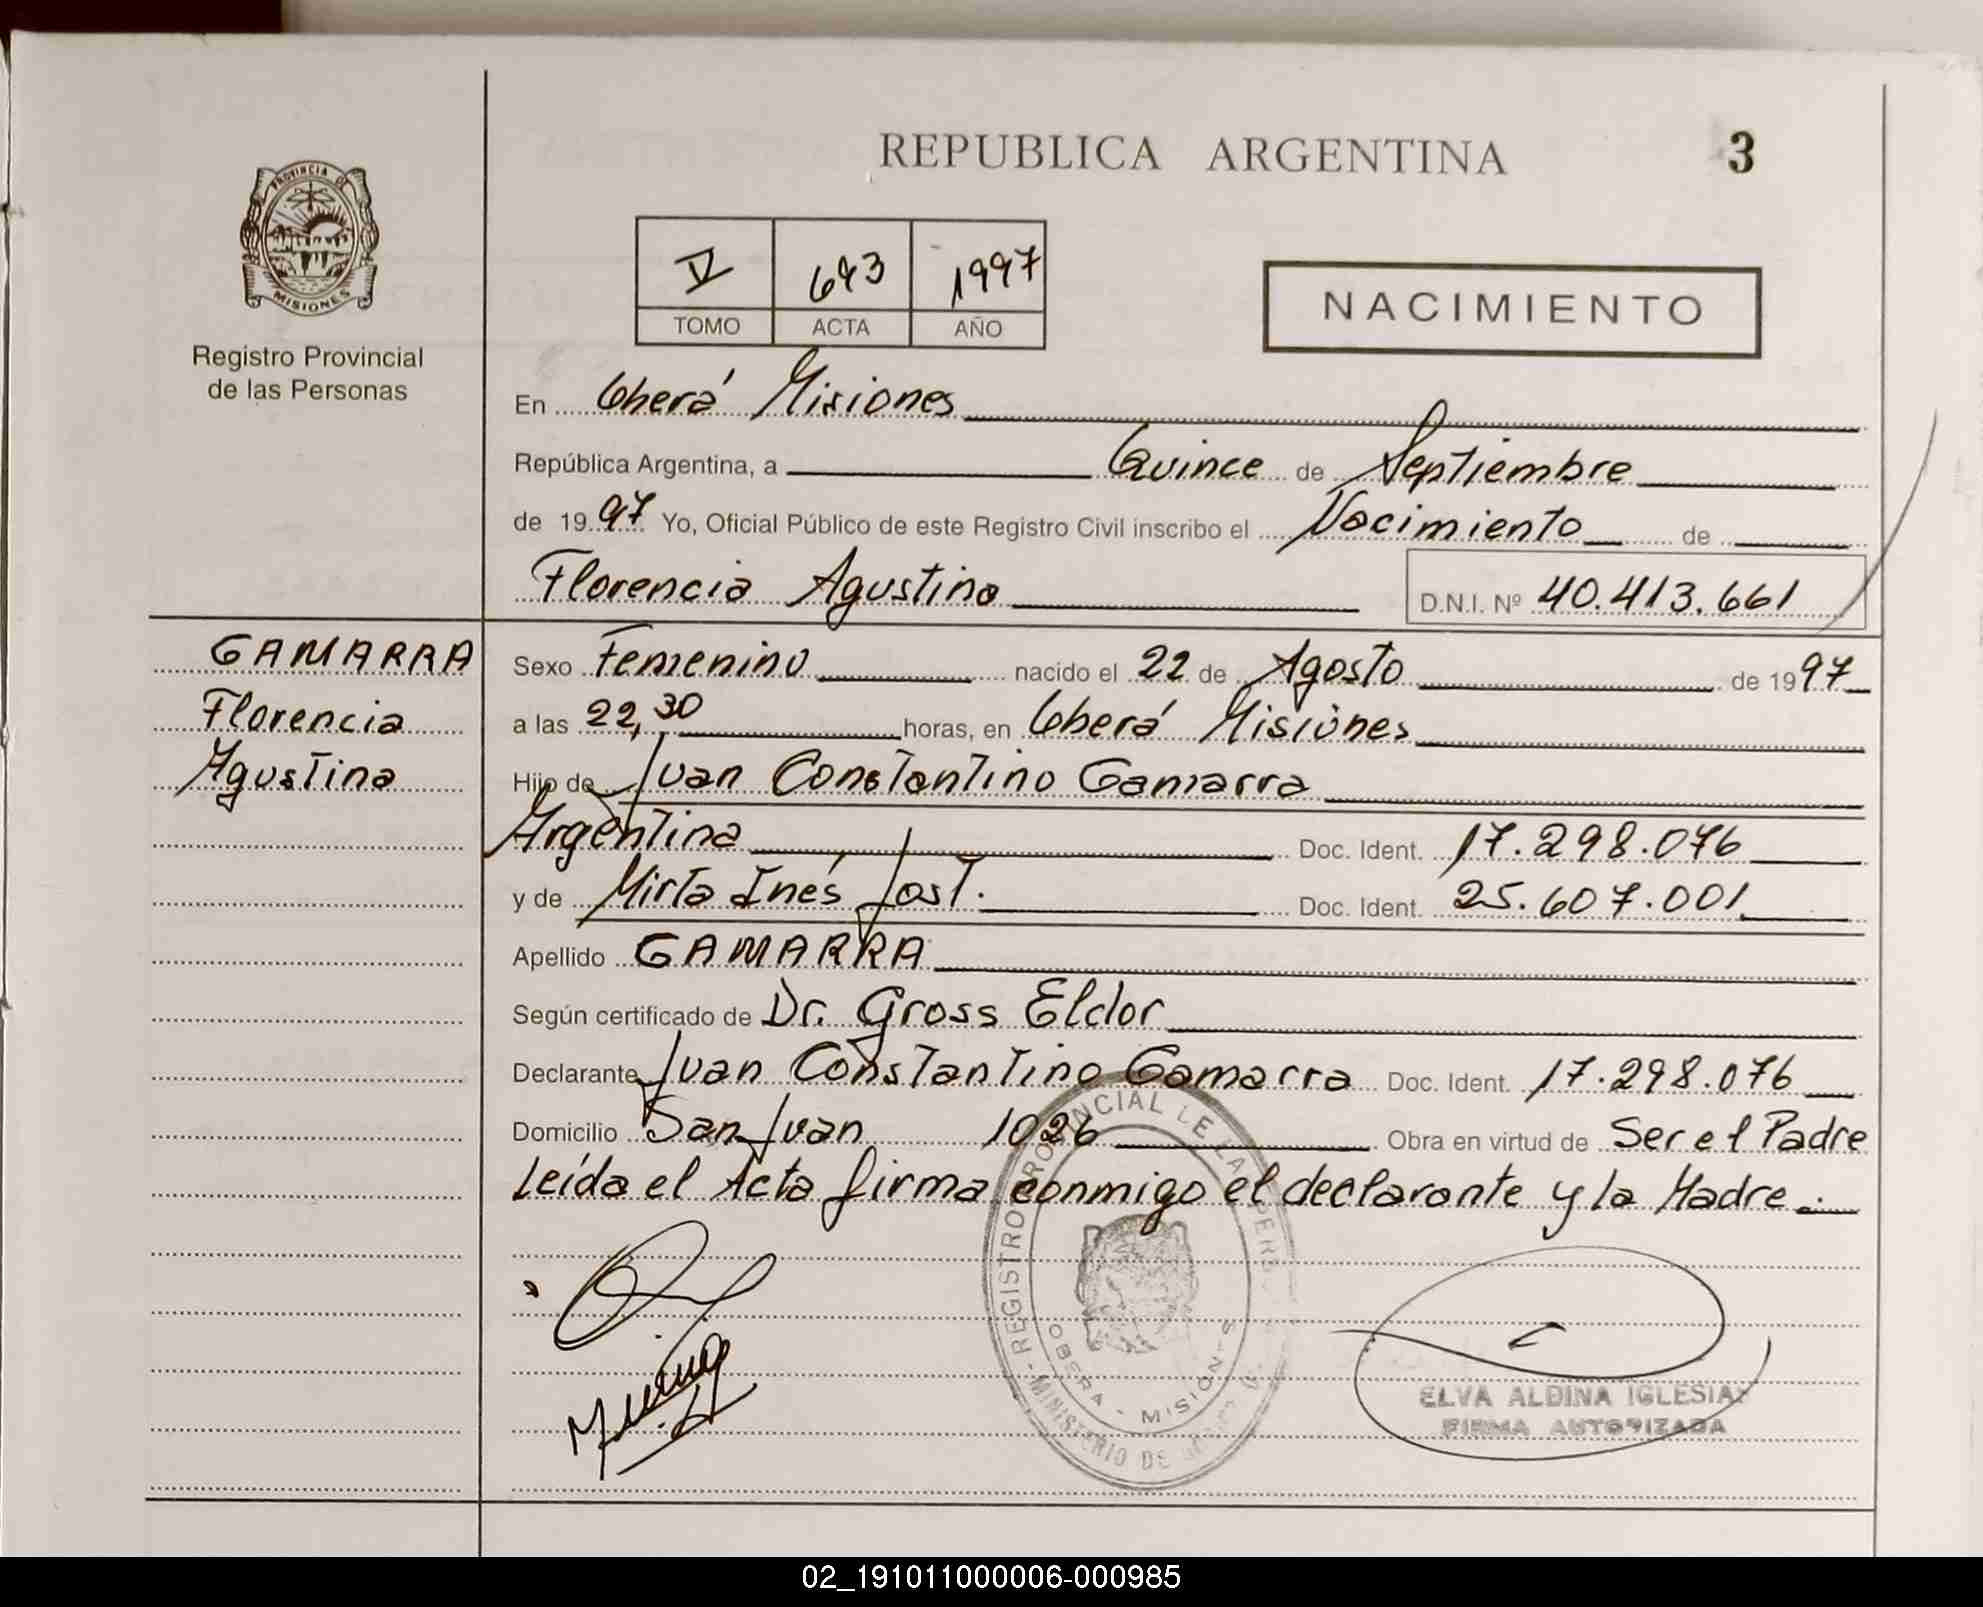 REPUBLICA ARGENTINA
3
PROVINCIA DE
MISIONES
Registro Provincial
de las Personas
V 643 1997
TOMO ACTA AÑO
NACIMIENTO
En Oberá Misiones
República Argentina, a Quince de Septiembre
de 1997 Yo, Oficial Público de este Registro Civil inscribo el Nacimiento de
Florencia Agustina D.N.I. Nº 40.413.661
GAMARRA
Florencia
Agustina
Sexo Femenino nacido el 22 de Agosto de 1997
a las 22,30 horas, en Oberá Misiones
Hijo de Juan Constantino Gamarra
Argentina Doc. Ident. 17.298.076
y de Mirta Inés Jost. Doc. Ident. 25.607.001
Apellido GAMARRA
Según certificado de Dr. Gross Eldor
Declarante Juan Constantino Gamarra Doc. Ident. 17.298.076
Domicilio San Juan 1026 Obra en virtud de Ser el Padre
Leída el Acta firma conmigo el declarante y la Madre.
REGISTRO PROVINCIAL DE LAS PERS
OBERA - MISIONES
MINISTERIO DE
ELVA ALDINA IGLESIAS
FIRMA AUTORIZADA
02_191011000006-000985